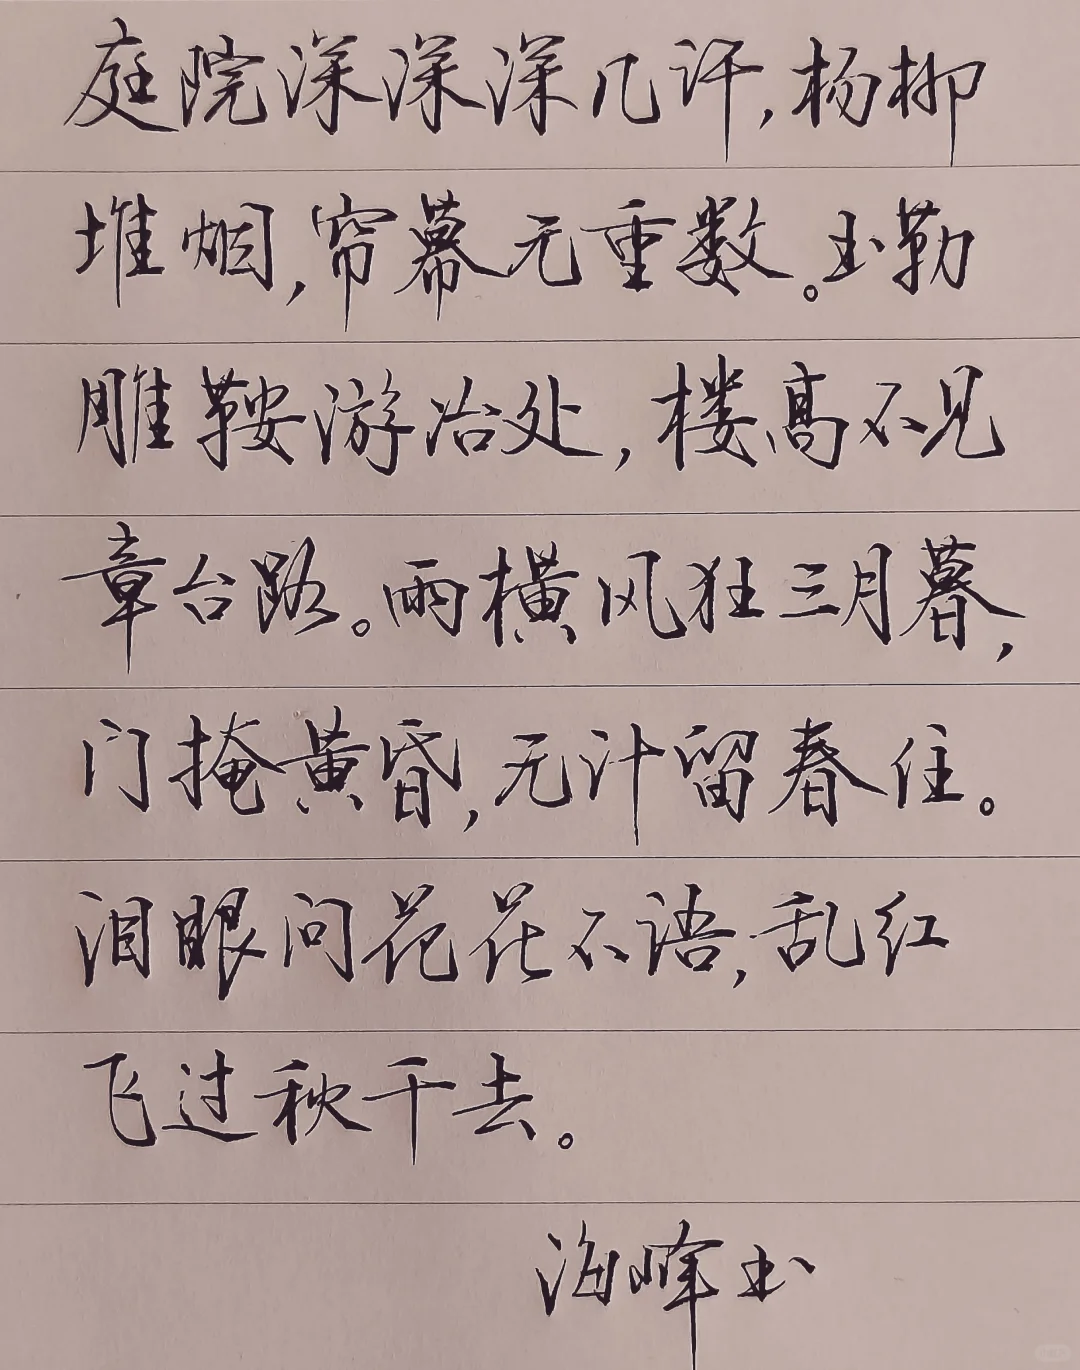 庭院深深深几许，杨柳
堆烟，帘幕无重数。玉勒
雕鞍游冶处，楼高不见
章台路。雨横风狂三月暮，
门掩黄昏，无计留春住。
泪眼问花花不语，乱红
飞过秋千去。
海峰书